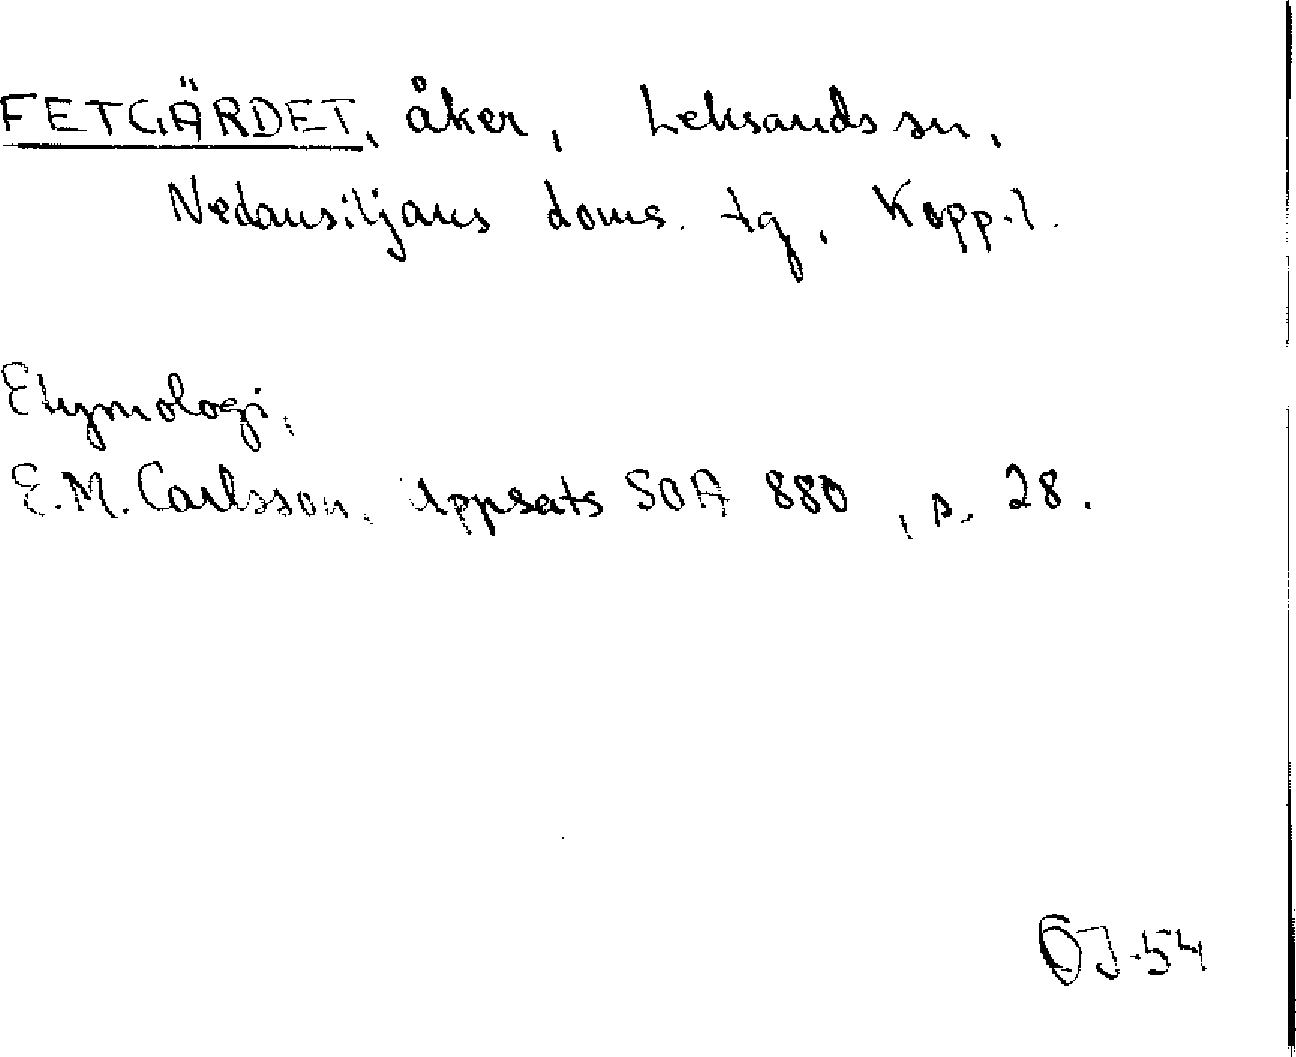 FETGÄRDET, åker, Leksands sn,
Nedansiljans doms. tg, Kopp.l.
Etymologi,
E.M. Carlsson. Uppsats SOA 880, s. 28.
OJ-54